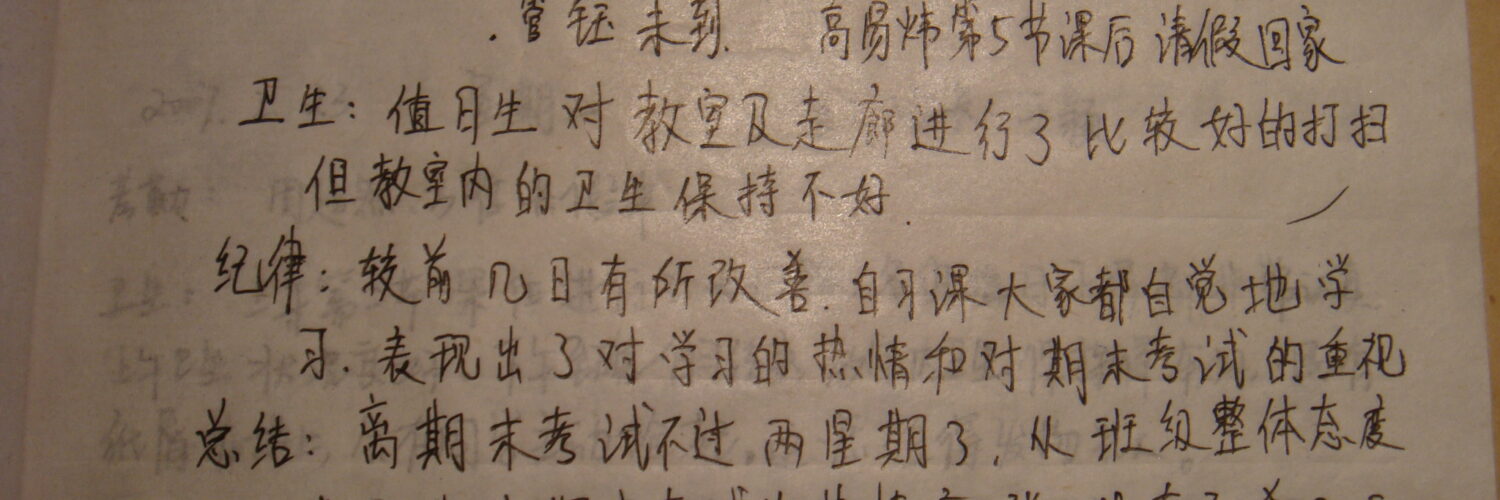 管钰未到. 高易炜第5节课后请假回家
卫生：值日生对教室及走廊进行了比较好的打扫
但教室内的卫生保持不好.
纪律：较前几日有所改善.自习课大家都自觉地学
习.表现出了对学习的热情和对期末考试的重视
总结：离期末考试不过,两星期了,从班级整体态度